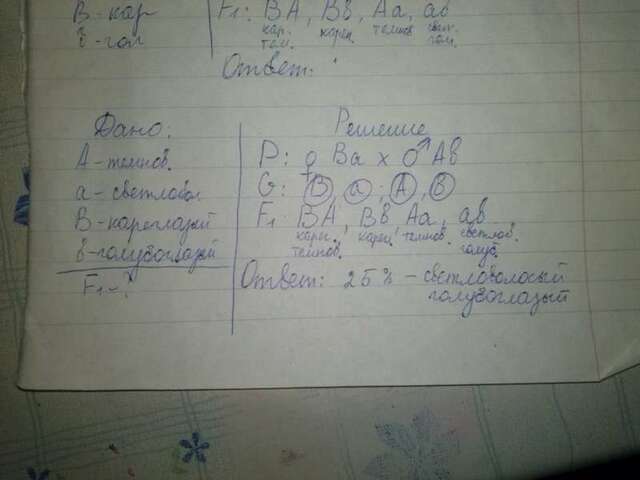 В - кар
в - гол
F₁: ВА, Вв, Аа, ав
кар. карец. темнов. свет.
тем. гол.
Ответ:
Дано:
А - темнов.
а - светловол
В - кареглазый
в - голубоглазый
F₁ - ?
Решение
Р: ♀ Ва х ♂ Ав
G: В а ; А , в
F₁: ВА, Вв Аа, ав
карег. карец. темнов. светлов.
темнов. голуб.
Ответ: 25% - светловолосый
голубоглазый